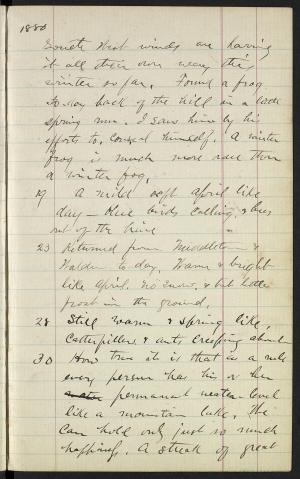 1880
South West winds are having
it all their own way this
winter so far. Found a frog
to-day back of the hill in a little
spring run. I saw him by his
efforts to conceal himself. A winter
frog is much more rare than
a winter fog.
19 A mild soft April like
day — blue birds calling, & bees
out of the hive
23 Returned from Middletown &
Walden to day. Warm & bright
like April. No snow, & but little
frost in the ground.
28 Still warm & spring like,
Caterpillers & ants creeping about
30 How true it is that as a rule
every person has his or her
permanent water level
like a mountain lake. He
can hold only just so much
happiness. A streak of great